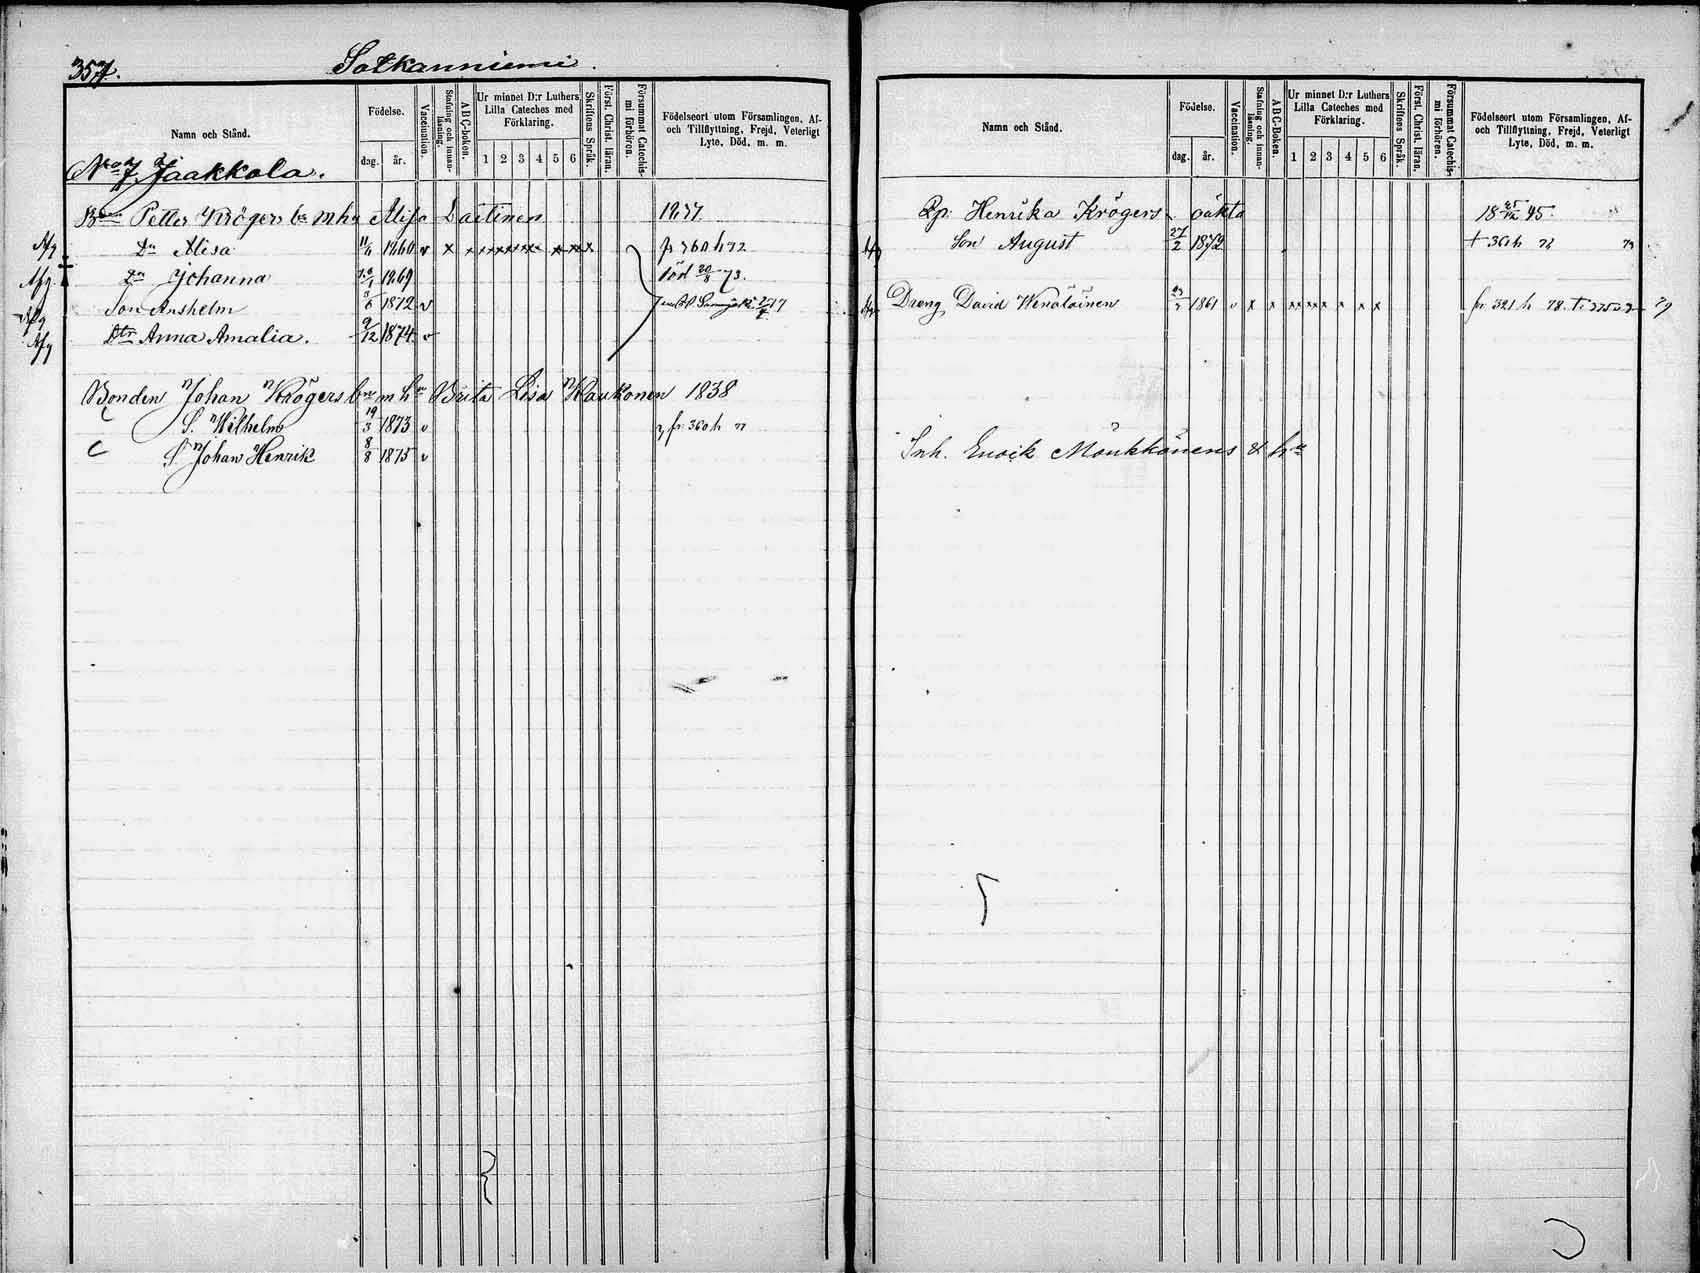 357.
Sotkanniemi.
Namn och Stånd.
Födelse.
dag. år.
Vaccination.
Stafning och innanläsning.
ABC-boken.
Ur minnet D:r Luthers Lilla Cateches med Förklaring.
1 2 3 4 5 6
Skriftens Språk.
Först. Christ. läran.
Försummat Catechismi förhören.
Födelseort utom Församlingen, Af-
och Tillflyttning, Frejd, Veterligt
Lyte, Död, m. m.
No 7 Jaakkola.
Petter Krögers bn m hu Alisa Laitinen 1837.
Afg Dr Alisa 1860 v x fr 360 h 72
Afg. † Dr Johanna 1869 död 20/8 73.
Afg Son Anshelm 3/6 1872 v
Afg Dtr Anna Amalia. 9/12 1874 v
Bonden Johan Krögers bn m hu Brita Lisa Kaukonen 1838
S. Wilhelm 19/3 1873 v fr. 360 h 77
S. Johan Henrik 8/8 1875 v
Namn och Stånd.
Födelse.
dag. år.
Vaccination.
Stafning och innanläsning.
ABC-Boken.
Ur minnet D:r Luthers Lilla Cateches med Förklaring.
1 2 3 4 5 6
Skriftens Språk.
Först. Christ. läran.
Försummat Catechismi förhören.
Födelseort utom Församlingen, Af-
och Tillflyttning, Frejd, Veterligt
Lyte, Död, m. m.
Pp. Henrika Krögers oäkta 18 25/12 45.
Afg Son August 27/2 1872
Afg Dreng David Wenäläinen 1861 v x x x x x x x x x fr 321 h 78. 79
Inh. Enoik Mönkkönens & hu